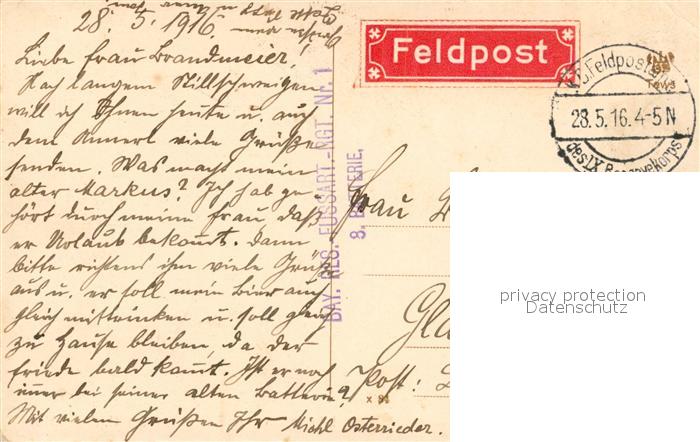 28. 5. 1916.
Liebe Frau Brandmeier!
Nach langem Stillschweigen
will ich Ihnen heute u. auch
dem Annerl viele Grüße
senden. Was macht mein
alter Markus? Ich hab ge-
hört durch meine Frau, daß
er Urlaub bekommt. Dann
bitte richtens ihm viele Grüße
aus u. er soll mein Bier auch
gleich mittrinken u. soll gleich
zu Hause bleiben, da der
Friede bald kommt. Ist er noch
immer bei seiner alten Batterie?
Mit vielen Grüßen Ihr Michl Osterrieder.
BAY. RES. FUSSART.-RGT. Nr. 1
8. BATTERIE.
Feldpost
K.B. Feldpost
28.5.16. 4-5 N
des IX. Reservekorps
Frau
Post:
privacy protection
Datenschutz